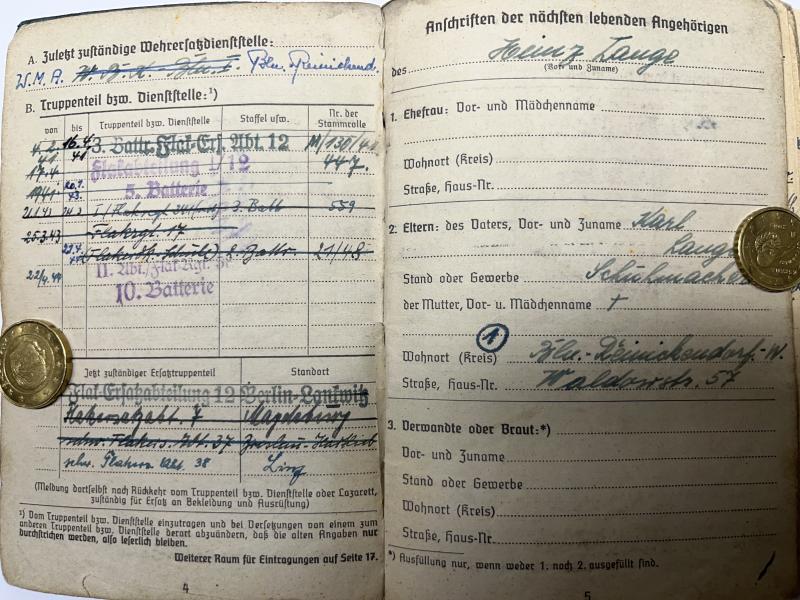 A. Zuletzt zuständige Wehrersatzdienststelle:
W.M.A. Bln. Reinickend.
B. Truppenteil bzw. Dienststelle:¹)
von bis Truppenteil bzw. Dienststelle Staffel usw. Nr. der Stammrolle
16.4. 41 3. Battr. Flak-Ers. Abt. 12
17.4. Flakabteilung I/12 447.
1941 5. Batterie
21.1.43 3. Batt 559
25.3.43 Flakrgt 17
21/43
22/4.44 II. Abt./Flak-Rgt.
10. Batterie
Jetzt zuständiger Ersatztruppenteil Standort
Flak-Ersatzabteilung 12 Berlin-Lankwitz
7 Magdeburg
37
schw. 38 Linz
(Meldung dortselbst nach Rückkehr vom Truppenteil bzw. Dienststelle oder Lazarett,
zuständig für Ersatz an Bekleidung und Ausrüstung)
¹) Vom Truppenteil bzw. Dienststelle einzutragen und bei Versetzungen von einem zum
anderen Truppenteil bzw. Dienststelle derart abzuändern, daß die alten Angaben nur
durchstrichen werden, also leserlich bleiben.
Weiterer Raum für Eintragungen auf Seite 17.
4
Anschriften der nächsten lebenden Angehörigen
des Heinz Lange
(Vor- und Zuname)
1. Ehefrau: Vor- und Mädchenname
Wohnort (Kreis)
Straße, Haus-Nr.
2. Eltern: des Vaters, Vor- und Zuname Karl
Lange
Stand oder Gewerbe Schuhmacher
der Mutter, Vor- u. Mädchenname †
1
Wohnort (Kreis) Bln.-Reinickendorf-W.
Straße, Haus-Nr. Waldowstr. 57
3. Verwandte oder Braut:*)
Vor- und Zuname
Stand oder Gewerbe
Wohnort (Kreis)
Straße, Haus-Nr.
*) Ausfüllung nur, wenn weder 1. noch 2. ausgefüllt sind.
5